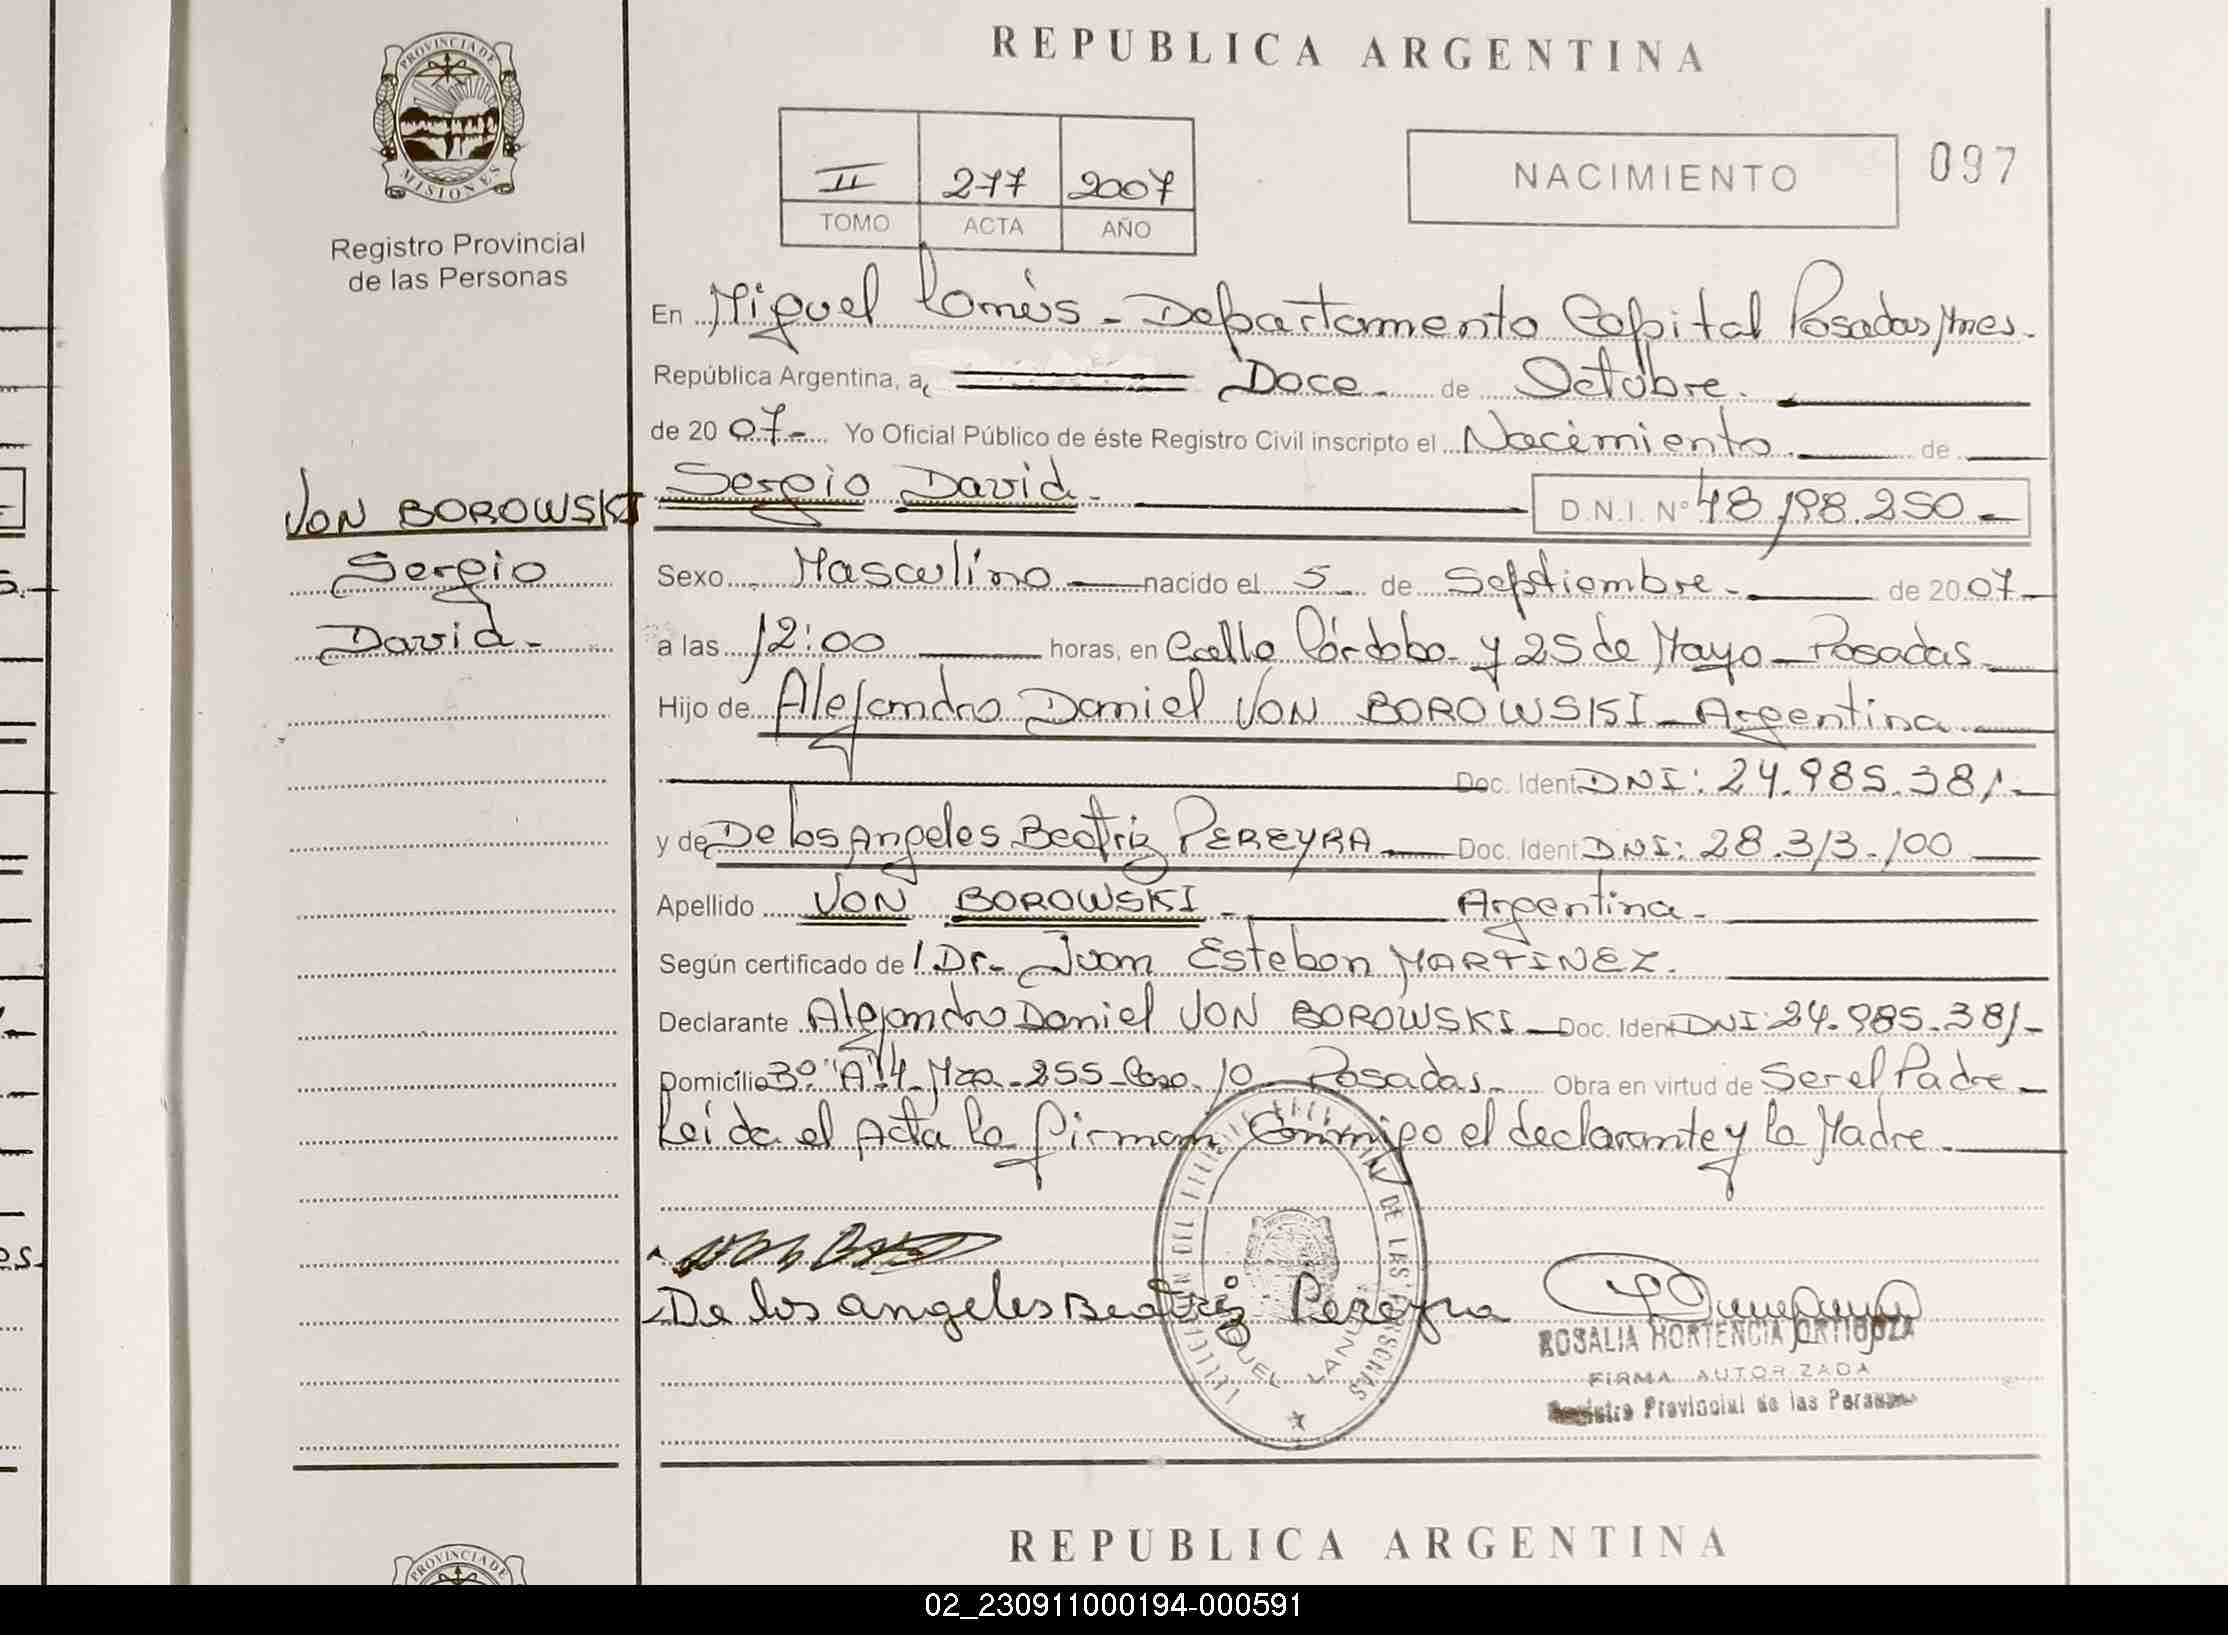 PROVINCIA DE
MISIONES
Registro Provincial
de las Personas
VON BOROWSKI
Sergio
David.-
REPUBLICA ARGENTINA
II 277 2007
TOMO ACTA AÑO
NACIMIENTO
097
En Miguel Lanús - Departamento Capital Posadas Mnes.
República Argentina, a Doce.- de Octubre.
de 2007.- Yo Oficial Público de éste Registro Civil inscripto el Nacimiento. de
Sergio David.- D.N.I. Nº 48.198.250.-
Sexo Masculino nacido el 5 de Septiembre.- de 2007.-
a las 12:00 horas, en Calle Córdoba y 25 de Mayo - Posadas.
Hijo de Alejandro Daniel VON BOROWSKI - Argentina.
Doc. Ident DNI: 24.985.381.-
y de De los Angeles Beatriz PEREYRA Doc. Ident DNI: 28.313.100
Apellido VON BOROWSKI.- Argentina.-
Según certificado de / Dr. Juan Esteban MARTINEZ.
Declarante Alejandro Daniel VON BOROWSKI Doc. Ident DNI: 24.985.381.-
Domicilio 3º "A" 4 Mza. 255 - Casa. 10 - Posadas.- Obra en virtud de Ser el Padre.-
Leída el Acta la firman Conmigo el declarante y la Madre.
De los angeles Beatriz Pereyra
DE LAS PERSONAS
ROSALIA HORTENCIA ORTIGOZA
FIRMA AUTORIZADA
Registro Provincial de las Personas
REPUBLICA ARGENTINA
PROVINCIA DE
02_230911000194-000591